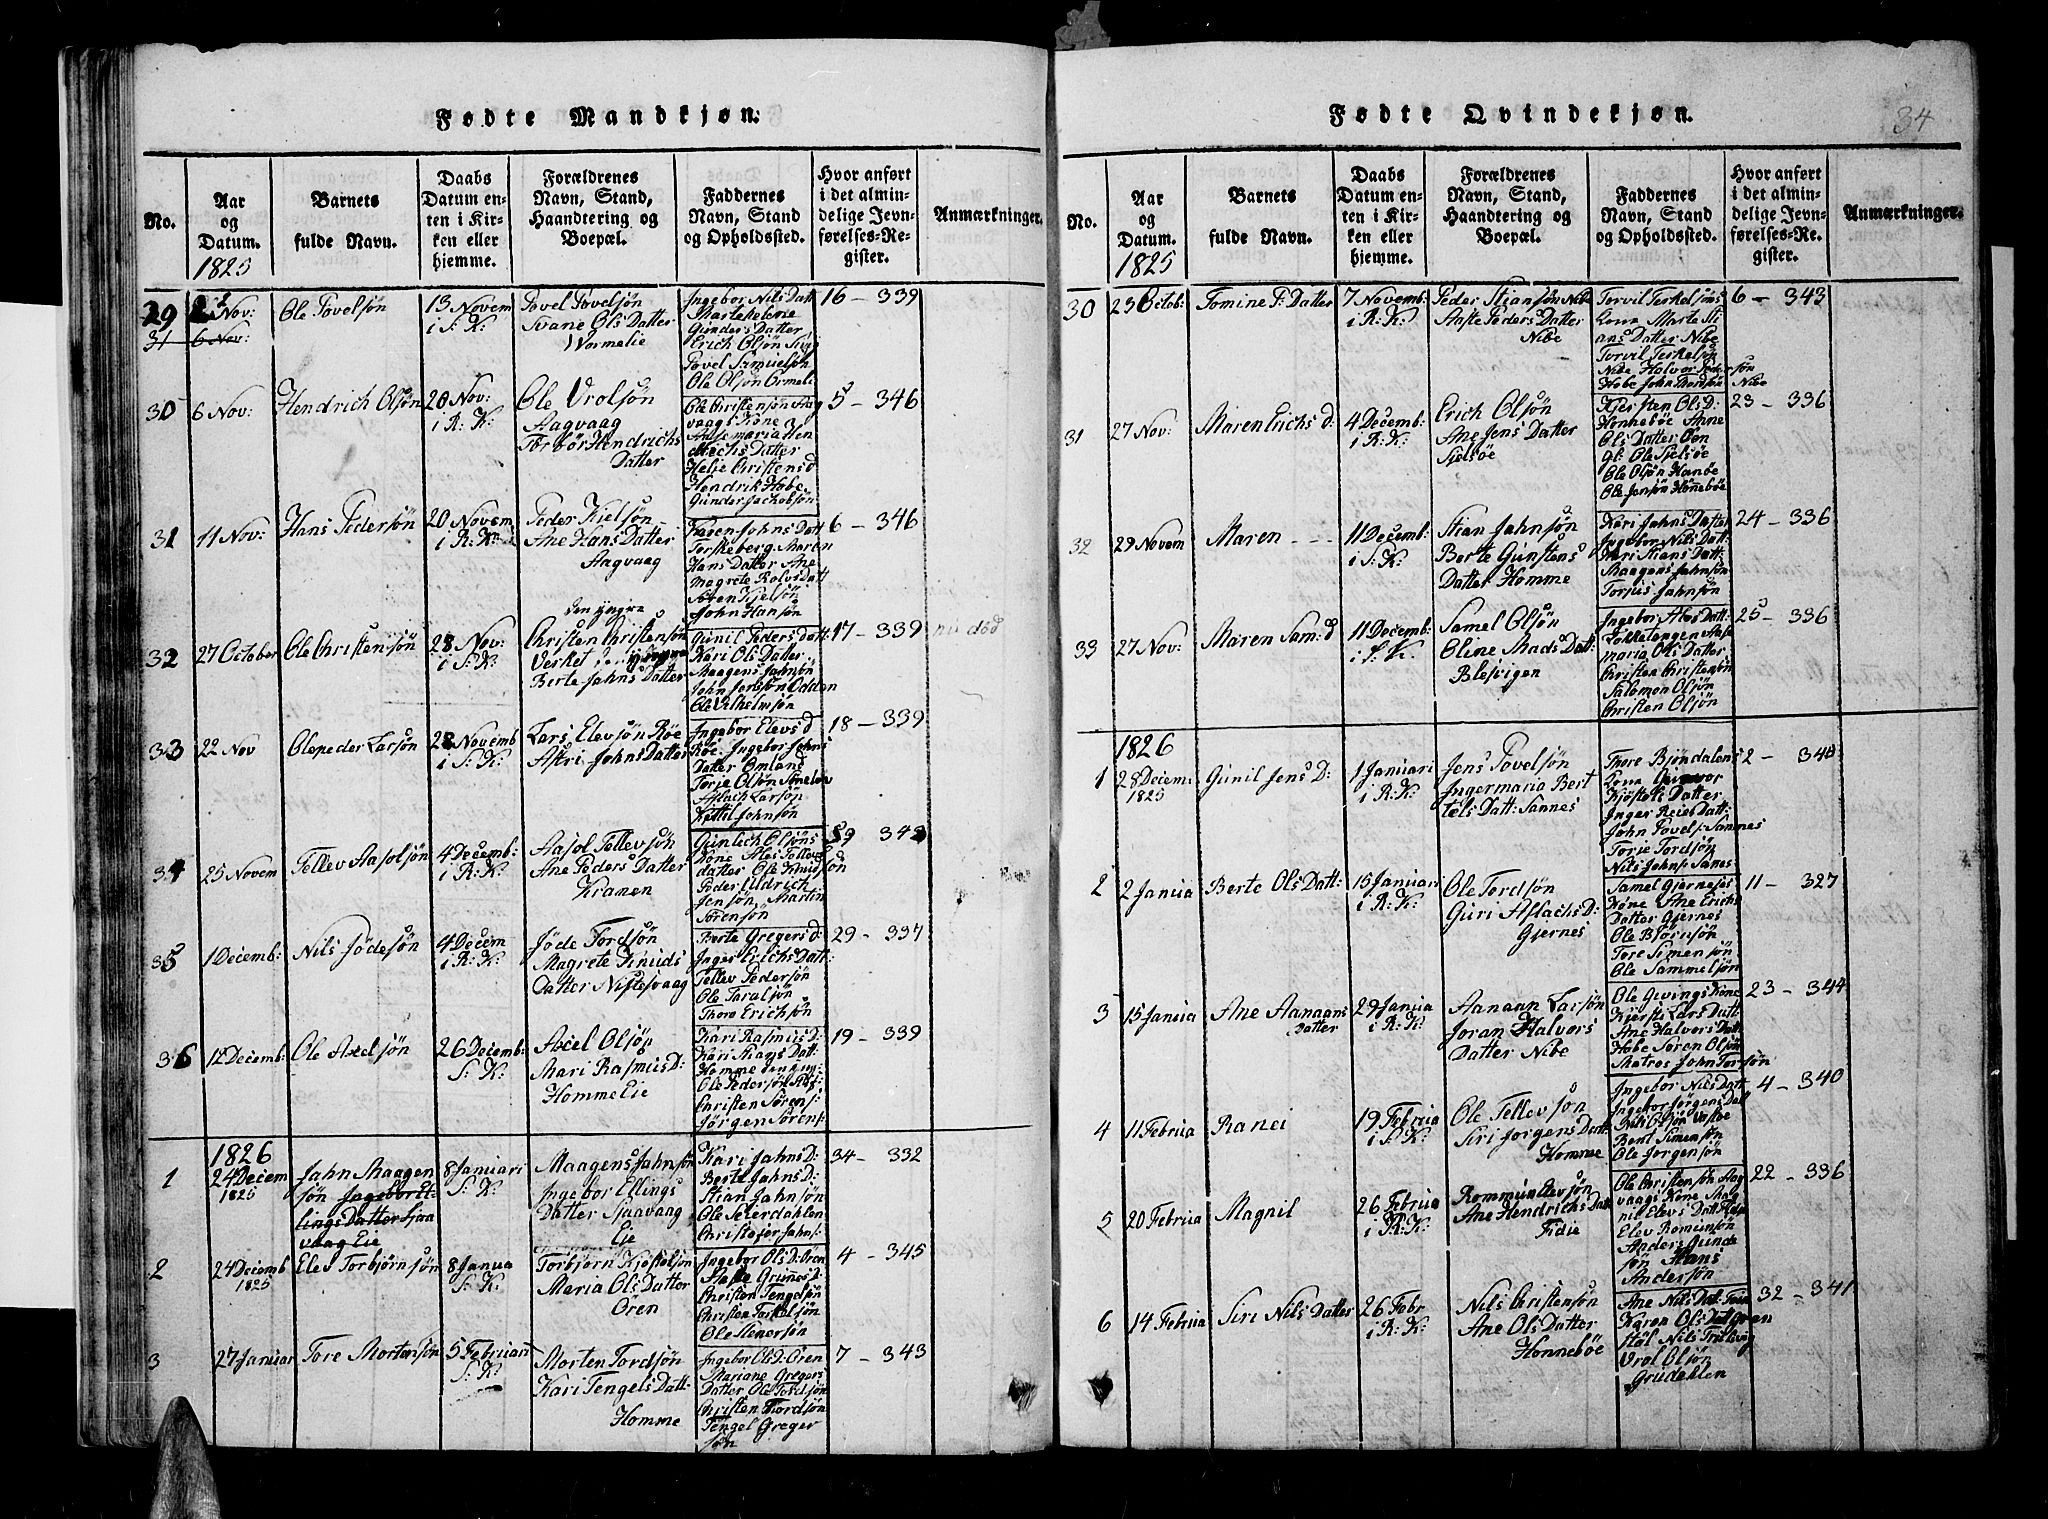 Fødte Mandkjøn.
No.
Aar
og
Datum.
1825
Barnets
fulde Navn.
Daabs
Datum en-
ten i Kir-
ken eller
hjemme.
Forældrenes
Navn, Stand,
Haandtering og
Boepæl.
Faddernes
Navn, Stand
og Opholdssted.
Hvor anført
i det almin-
delige Jevn-
førelses-Re-
gister.
Anmærkninger.
29
Nov:
31 6 Nov:
Ole Povelsön
13 Novem
i S: K:
Povel Povelsön
Svane Ols Datter
Vormelie
Ingebor Nils Datt
Martehelene
Gunders Datter
Erich Olsön
Povel Samuelsön
Ole Olsön Ormeli
16 - 339
30
6 Nov:
Hendrich Olsön
20 Nov:
i R: K:
Ole Vrolsön
Aagvaag
Torbör Hendrichs
Datter
Ole Christensön Aag
vaags Kone
Anne maria Hen
drichs Datter
Helje Christens d
Hendrik Hobe
Gunder Jachobsön
5 - 346
31
11 Nov:
Hans Pedersön
20 Novem
i R: K:
Peder Kielsön
Ane Hans Datter
Aagvaag
Karen Johns Datt
Torskeberg Maren
Hans Datter Ane
magrete Rolvs Datt
Sören Kjelsön
John Hansön
6 - 346
32
27 October
Ole Christensön
28 Nov:
i S: K:
den yngre
Christen Christensön
Verket den yngre
Berte Jahns Datter
Gunil Peders Datt:
Kari Ols Datter
Maagens Jahnsön
John Jensön Odden
Ole Vilhelmsön
17 - 339
nu död
33
22 Nov
Olepeder Larsön
28 Novemb
i S: K:
Lars Elevsön Röe
Astri Johns Datter
Ingebor Elevs d
Röe. Ingebor Johns
Datter Omland
Torje Olsön
Aslach Larsön
Kittil Johnsön
18 - 339
34
25 Novem
Tellev Aasolsön
4 Decemb:
i R: K:
Aasol Tellevsön
Ane Peders Datter
Kramen
Gunlech Olsöns
Kone Ales Tellevs
datter Ole Knudsön
Peder Uldrich
Jensön, Martin
Sörensön
9 - 342
35
1 Decemb:
Nils Jödesön
4 Decem
i R: K:
Jöde Tordsön
Magrete Knuds
Datter Nistesvaag
Berte Gregers d:
Inger Erichs Datt:
Tellev Pedersön
Ole Taralsön
Thore Erichsön
29 - 337
36
12 Decemb:
Ole Axelsön
26 Decemb:
S: K:
Axel Olsön
Mari Rasmus D:
Homme Eie
Kari Rasmus D:
Kari Stians Datt:
Homme
Ole Pedersön
Christen Sörens:
Jörgen Sörens:
19 - 339
1826
1
24 Decem
1825
Jahn Maagen
sön Ingebor El-
lings Datter Sjaa
vaag Eie
8 Januari
S: K:
Maagens Jahnsön
Ingebor Ellings
Datter Sjaavaag
Eie
Kari Jahns D:
Berte Jahns D:
Stian Jahnsön
Ole Seierdahlen
Christofer Jahns:
34 - 332
2
24 Decemb
1825
Elev Torbjörnsön
8 Janua
S: K:
Torbjörn Kjöstolsön
Maria Ols Datter
Ören
Ingebor Ols D: Ören
Aaste Grunnes D:
Christen Tengelsön
Christen Torkelsön
Ole Stenersön
4 - 345
3
27 Januar
Tore Mortensön
5 Februari
S: K:
Morten Tordsön
Kari Tengels Datt:
Homme
Ingebor Ols D: Ören
Mariane Gregers
Datter Ole Tordsön
Christen Tordsön
Tengel Greger
sön
7 - 343
Fødte Qvindekjøn.
34
No.
Aar
og
Datum.
1825
Barnets
fulde Navn.
Daabs
Datum en-
ten i Kir-
ken eller
hjemme.
Forældrenes
Navn, Stand,
Haandtering og
Boepæl.
Faddernes
Navn, Stand
og Opholdssted.
Hvor anført
i det almin-
delige Jevn-
førelses-Re-
gister.
Anmærkninger.
30
23 Octob:
Tomine P: Datter
7 Novemb:
i R: K:
Peder Stiansön Nibe
Aaste Peders Datter
Nibe
Torvil Terkelsöns
Kone Marte Sti
ans Datter Nibe
Torvil Terkelsön
Nibe Halvor Pedersön
Hobe John Tordsön Nibe
6 - 343
31
27 Nov:
Maren Erichs d:
4 Decemb:
i R: K:
Erich Olsön
Ane Jens Datter
Sjelsöe
Kjersten Ols D:
Honneböe Anne
Ols Datter Oen
gl: Ole Sjelsöe
Ole Olsön Hanöe
Ole Jensön Hönneböe
23 - 336
32
29 Novem
Maren - - -
11 Decemb:
i S: K:
Stian Jahnsön
Berte Gunstens
Datter Homme
Kari Jahns Datter
Ingebor Nils Datt:
Kari Stians Datt:
Maagens Jahnsön
Torjus Jahnsön
24 - 336
33
27 Nov:
Maren Sam: d
11 Decemb:
i S: K:
Samel Olsön
Oline Mads Datt:
Blesvigen
Ingebor Abos Datt:
Fokkelangen Aase
maria Ols Datter
Christen Christensön
Salomon Olsön
Christen Olsön
25 - 336
1826
1
28 Decem:
1825
Gunil Jens D:
1 Januari
i R: K:
Jens Povelsön
Ingermaria Bert
tels Datt: Sannes
Thore Bjöndalens
Kone Gunvor
Kjöstels Datter
Inger Reiers Datt:
John Povels: Sannes
Torje Tordsön
Nils Johns: Sanes
2 - 340
2
2 Janua
Berte Ols Datt:
15 Januari
i R: K:
Ole Tordsön
Guri Aslachs D:
Gjernes
Samel Gjerneses
Kone Ane Erichs
Datter Gjernes
Ole Björnsön
Tore Simensön
Ole Sammelsön
11 - 327
3
15 Janua
Ane Aanaans
Datter
29 Janua
i R: K:
Aanaan Larsön
Joran Halvors
Datter Nibe
Ole Givings Kone
Kjersti Lars Datt:
Ane Halvors Datt:
Hobe Sören Olsön
Matros John Torsön
23 - 344
4
11 Februa
Ranei
19 Februa
i S: K:
Ole Tellevsön
Siri Jorgens Datt:
Homme
Ingebor Nils Datt
Ingebor Jörgens Datt
Nils Olsön
Bent Simensön
Ole Jorgensön
4 - 340
5
20 Februa
Magnil
26 Februa
i R: K:
Rommun Elevsön
Ane Hendrichs Datt
Fidie
Ole Christensön Aag
vaags Kone Mag
nil Elevs Datt
Elev Romunsön
Anders Gunde
sön Hans
Andersön
22 - 336
6
14 Februa
Siri Nils Datter
26 Febr
i R: K:
Nils Christensön
Ane Ols Datter
Honneböe
Ane Nils Datt:
Karen Ols Datt Gran
stöl Nils
Vrol Olsön
Grudahlen
32 - 341